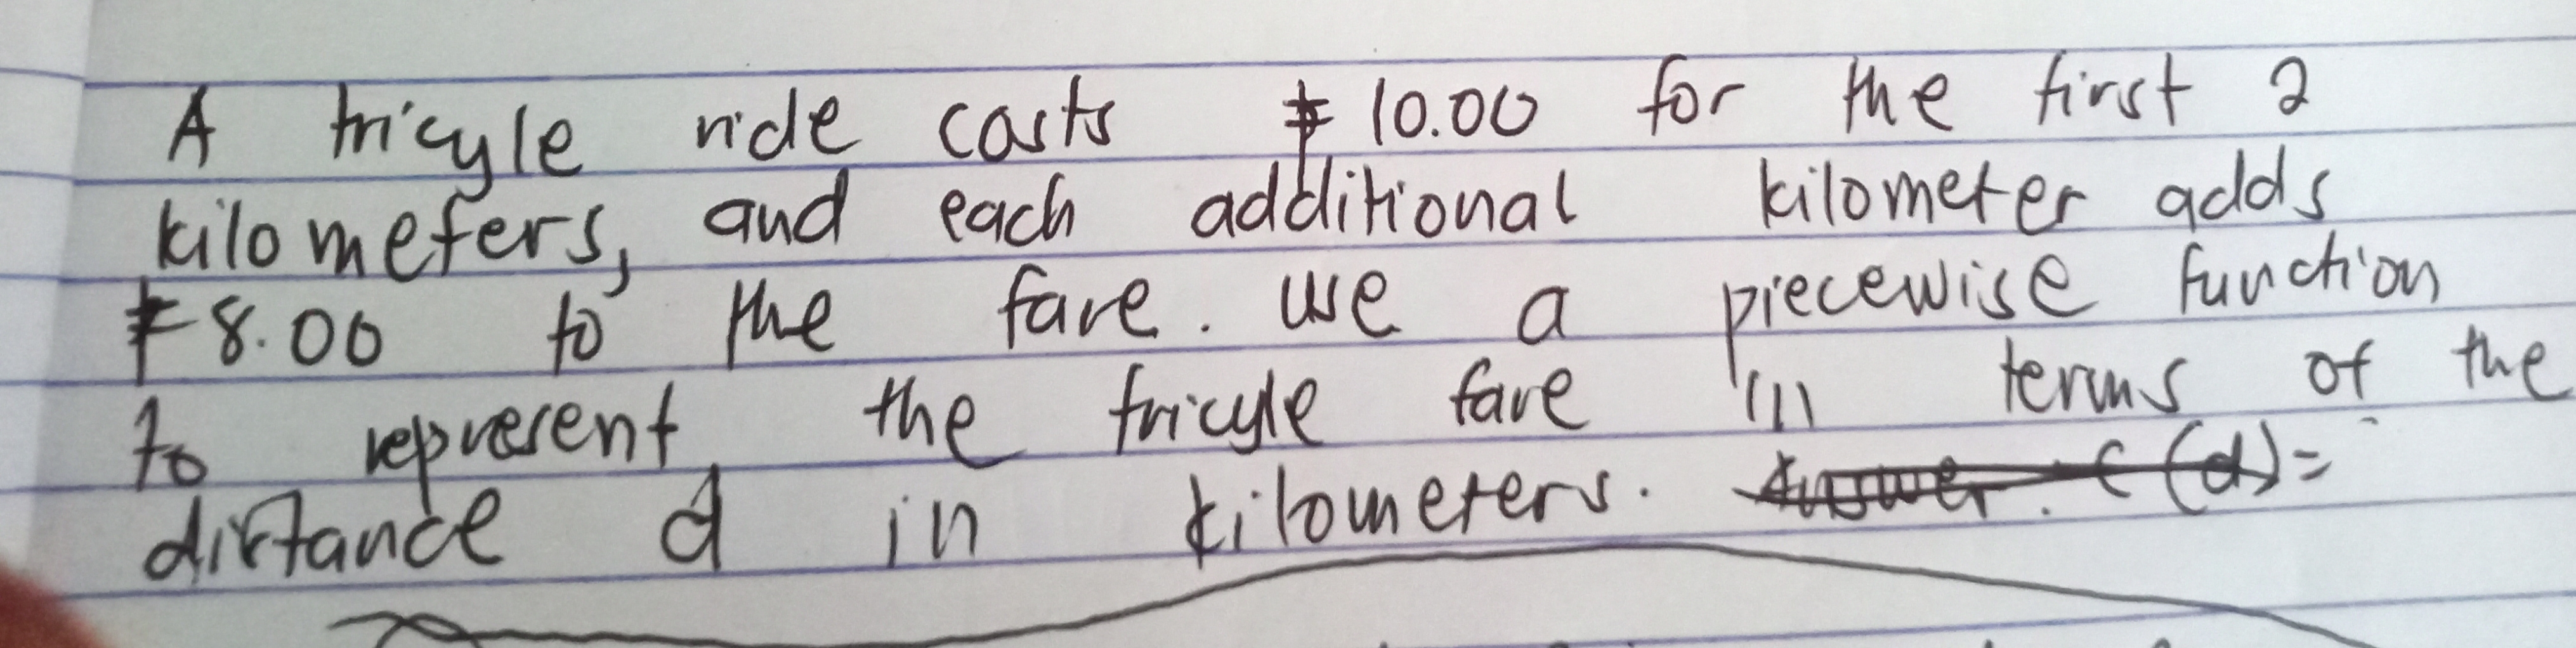 A tricyle ride costs ₱10.00 for the first 2
kilometers, and each additional kilometer adds
₱8.00 to the fare. use a piecewise function
to represent the tricyle fare in terms of the
distance d in kilometers. Answer: C(d)=